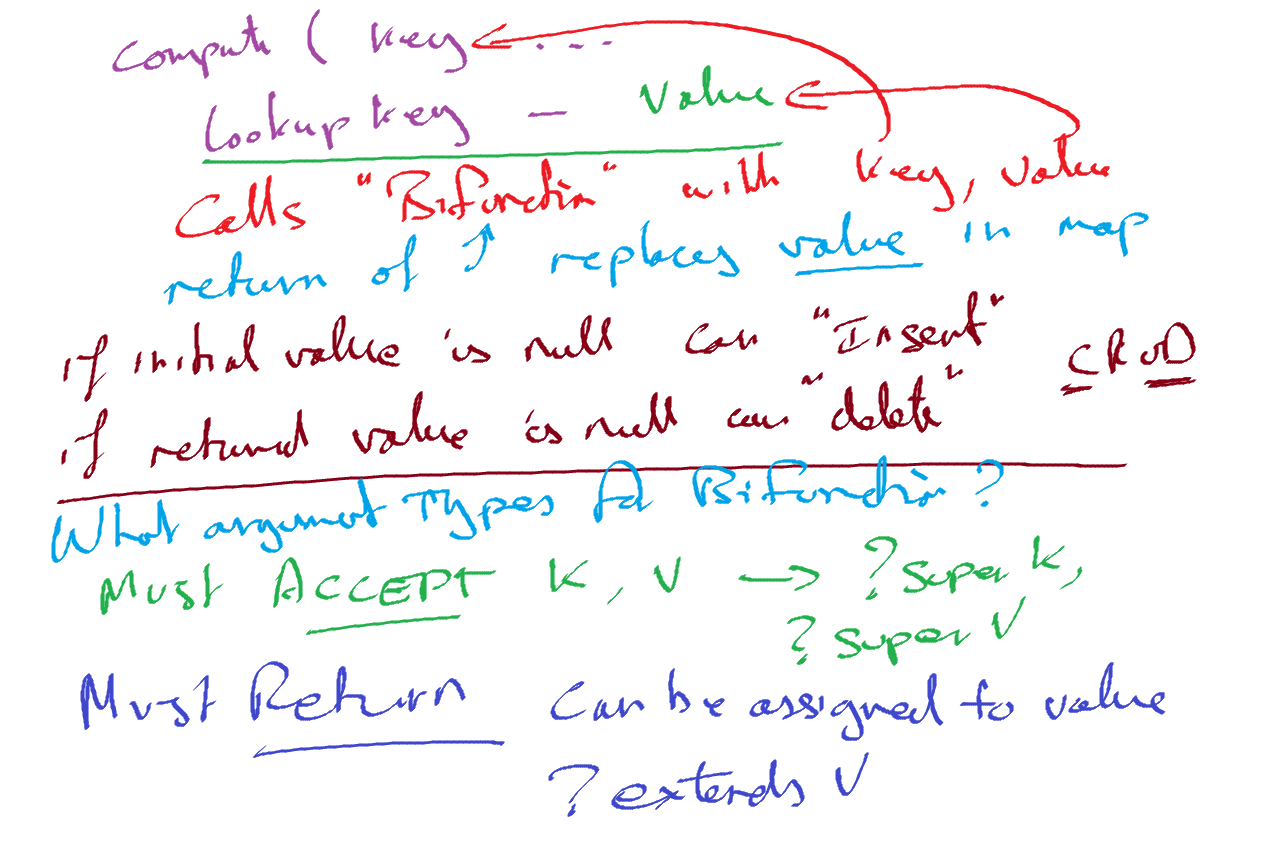 Compute ( key ...
Lookup key – Value
Calls "Bifunction" with key, value
return of ↑ replaces value in map
if initial value is null can "Insert"
CRUD
if returned value is null can "delete"
What argument Types for Bifunction?
Must ACCEPT K, V → ? super K,
? super V
Must Return Can be assigned to value
? extends V